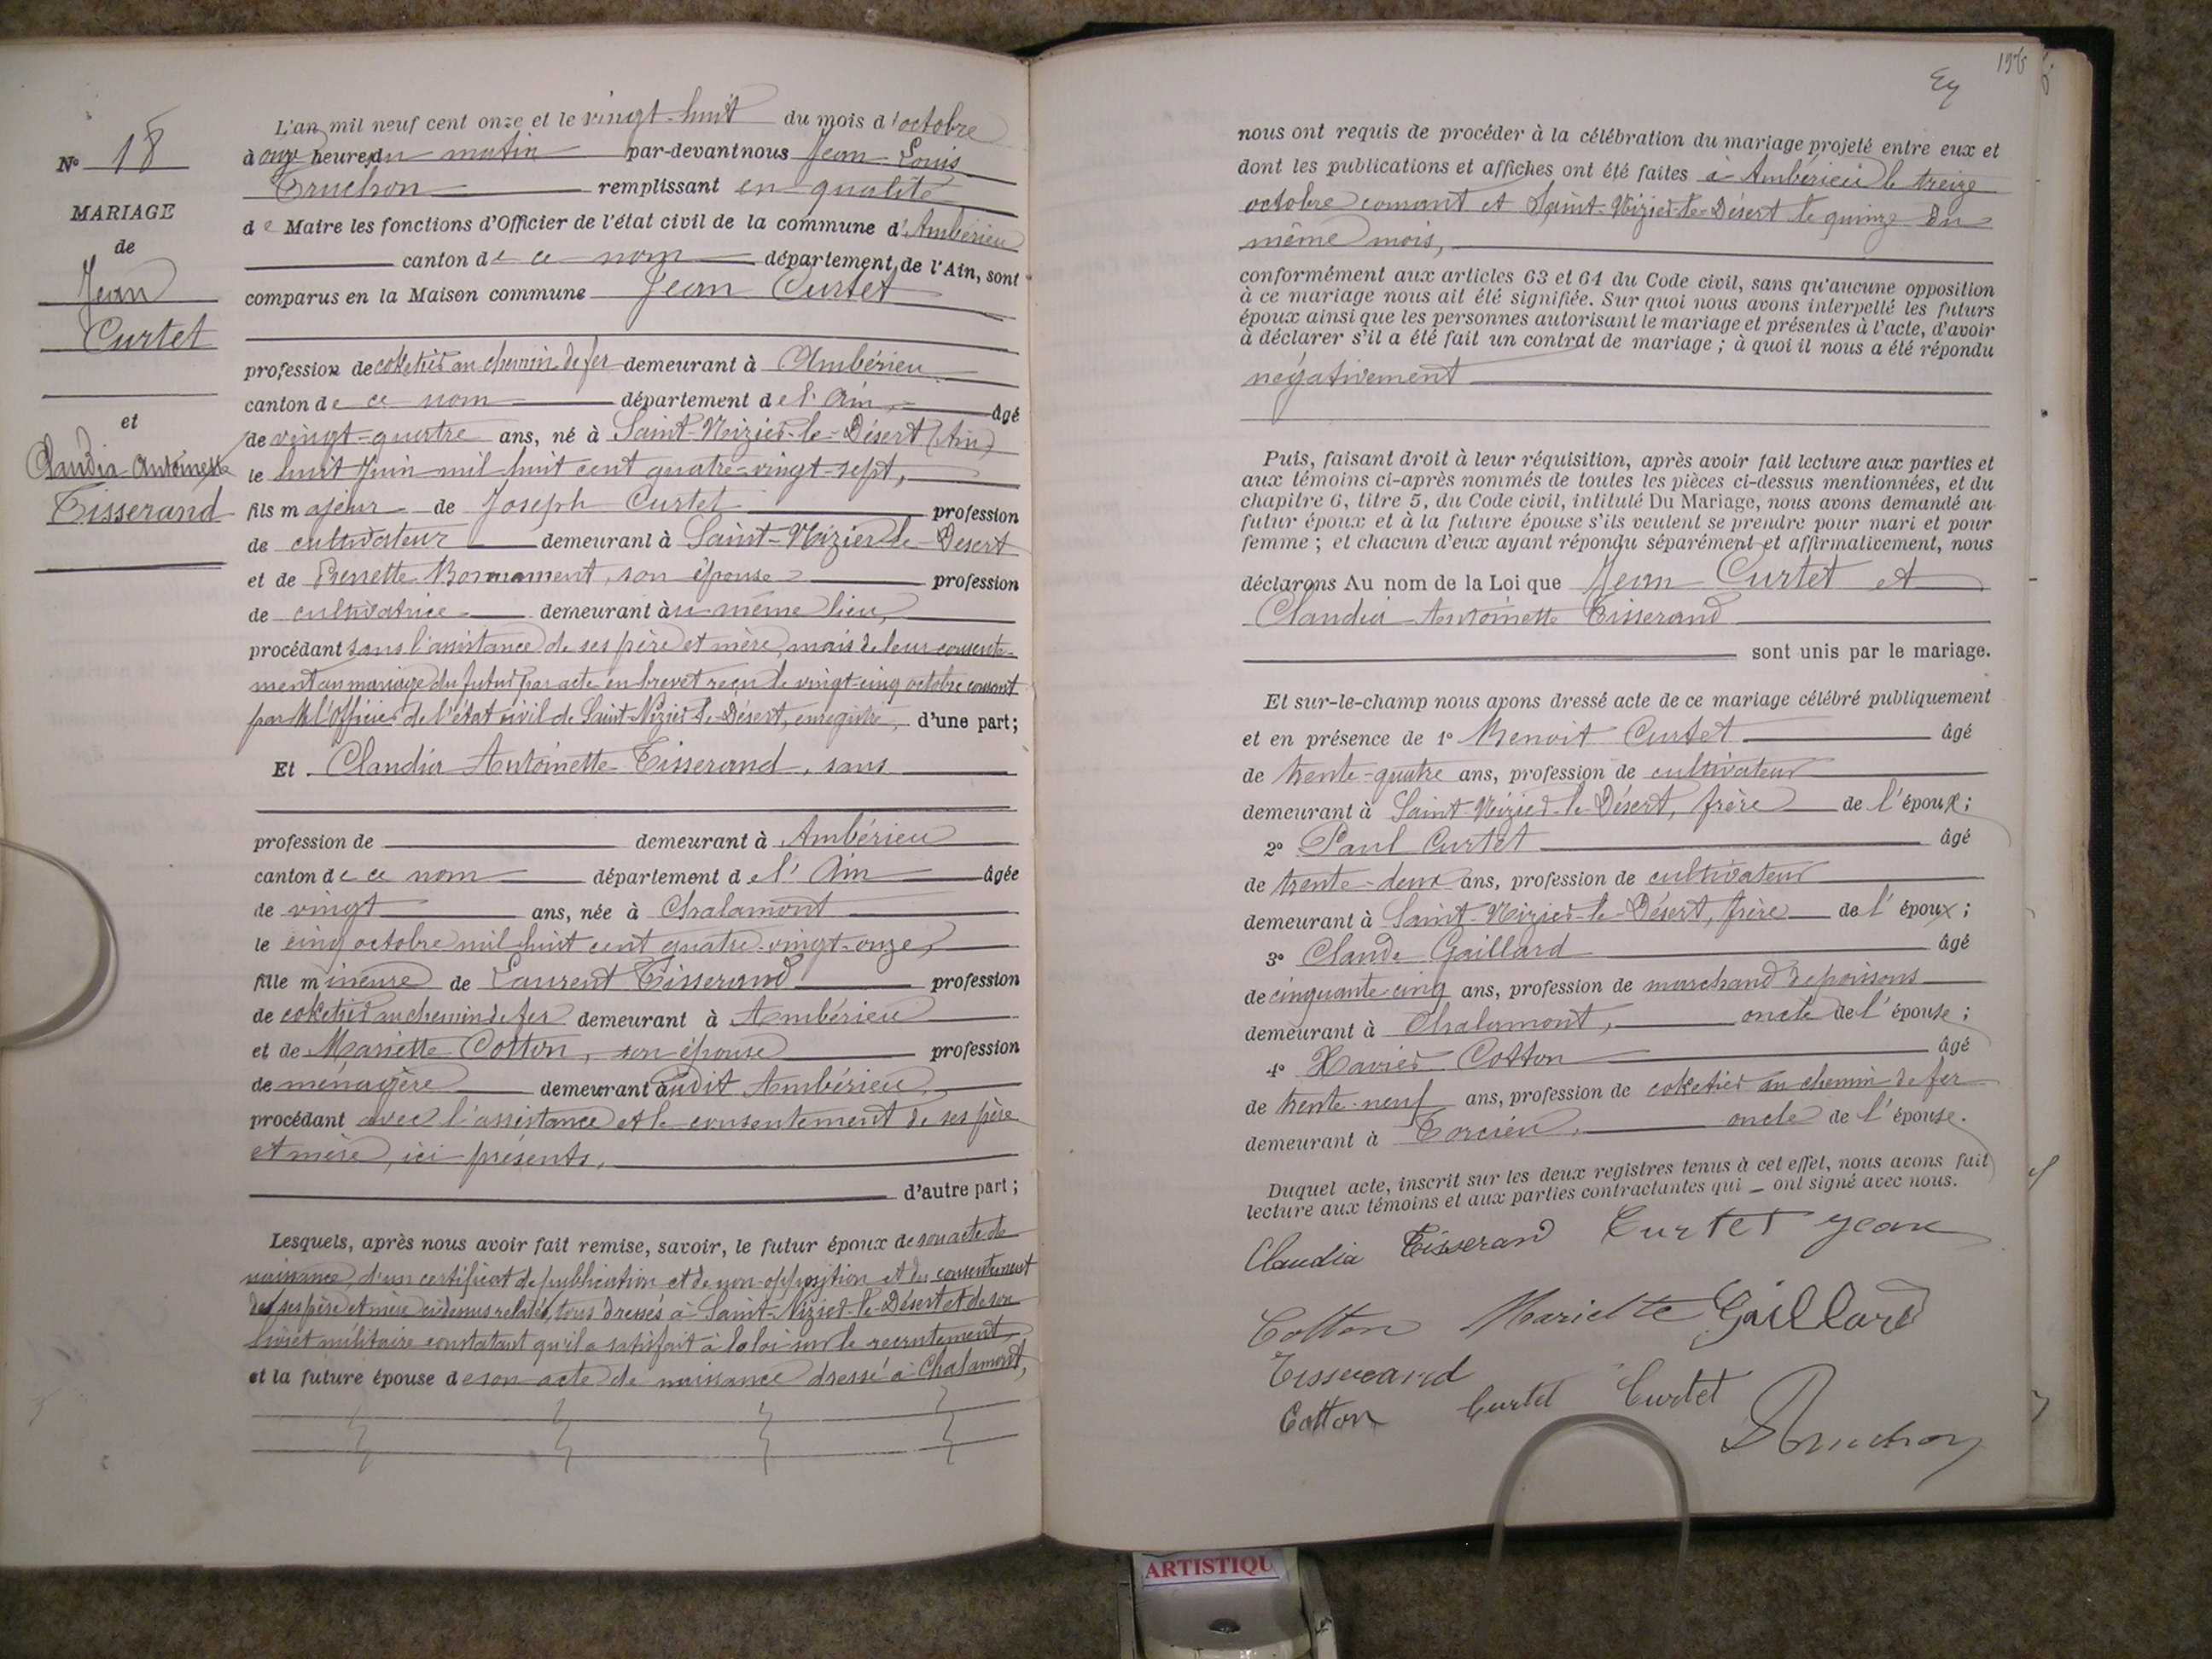 N° 18
MARIAGE
de
Jean
Curtet
et
Claudia Antoinette
Tisserand
L'an mil neuf cent onze et le vingt-huit du mois d'octobre
à onze heures du matin par-devant nous Jean Louis
Truchon remplissant en qualité
de Maire les fonctions d'Officier de l'état civil de la commune d'Ambérieu
canton de ce nom département de l'Ain, sont
comparus en la Maison commune Jean Curtet
profession de coketier au chemin de fer demeurant à Ambérieu
canton de ce nom département de l'Ain, âgé
de vingt-quatre ans, né à Saint-Nizier-le-Désert (Ain)
le huit Juin mil huit cent quatre-vingt-sept,
fils majeur de Joseph Curtet profession
de cultivateur demeurant à Saint-Nizier-le-Désert
et de Pierrette son épouse profession
de cultivatrice demeurant au même lieu,
procédant sans l'assistance de ses père et mère, mais de leur consente-
ment au mariage du futur par acte en brevet reçu le vingt-cinq octobre courant
par M. l'Officier de l'état civil de Saint-Nizier-le-Désert, enregistré, d'une part;
Et Claudia Antoinette Tisserand, sans
profession de demeurant à Ambérieu
canton de ce nom département de l'Ain âgée
de vingt ans, née à Chalamont
le cinq octobre mil huit cent quatre-vingt-onze,
fille mineure de Laurent Tisserand profession
de coketier au chemin de fer demeurant à Ambérieu
et de Mariette Cotton, son épouse profession
de ménagère demeurant audit Ambérieu,
procédant avec l'assistance et le consentement de ses père
et mère, ici présents,
d'autre part;
Lesquels, après nous avoir fait remise, savoir, le futur époux de son acte de
naissance, d'un certificat de publication et de non-opposition et du consentement
de ses père et mère ci-dessus relatés, tous dressés à Saint-Nizier-le-Désert et de son
livret militaire constatant qu'il a satisfait à la loi sur le recrutement
et la future épouse de son acte de naissance dressé à Chalamont,
196
nous ont requis de procéder à la célébration du mariage projeté entre eux et
dont les publications et affiches ont été faites à Ambérieu le treize
octobre courant et Saint-Nizier-le-Désert le quinze du
même mois,
conformément aux articles 63 et 64 du Code civil, sans qu'aucune opposition
à ce mariage nous ait été signifiée. Sur quoi nous avons interpellé les futurs
époux ainsi que les personnes autorisant le mariage et présentes à l'acte, d'avoir
à déclarer s'il a été fait un contrat de mariage; à quoi il nous a été répondu
négativement
Puis, faisant droit à leur réquisition, après avoir fait lecture aux parties et
aux témoins ci-après nommés de toutes les pièces ci-dessus mentionnées, et du
chapitre 6, titre 5, du Code civil, intitulé Du Mariage, nous avons demandé au
futur époux et à la future épouse s'ils veulent se prendre pour mari et pour
femme; et chacun d'eux ayant répondu séparément et affirmativement, nous
déclarons Au nom de la Loi que Jean Curtet et
Claudia Antoinette Tisserand
sont unis par le mariage.
Et sur-le-champ nous avons dressé acte de ce mariage célébré publiquement
et en présence de 1° Benoit Curtet âgé
de trente-quatre ans, profession de cultivateur
demeurant à Saint-Nizier-le-Désert, frère de l'époux;
2° Paul Curtet âgé
de trente-deux ans, profession de cultivateur
demeurant à Saint-Nizier-le-Désert, frère de l'époux;
3° Claude Gaillard âgé
de cinquante-cinq ans, profession de marchand de poissons
demeurant à Chalamont, oncle de l'épouse;
4° Xavier Cotton âgé
de trente-neuf ans, profession de coketier au chemin de fer
demeurant à Torcieu, oncle de l'épouse.
Duquel acte, inscrit sur les deux registres tenus à cet effet, nous avons fait
lecture aux témoins et aux parties contractantes qui ont signé avec nous.
Claudia Tisserand Curtet Jean
Cotton Mariette Gaillard
Tisserand
Cotton Curtet Curtet
Truchon
ARTISTIQU